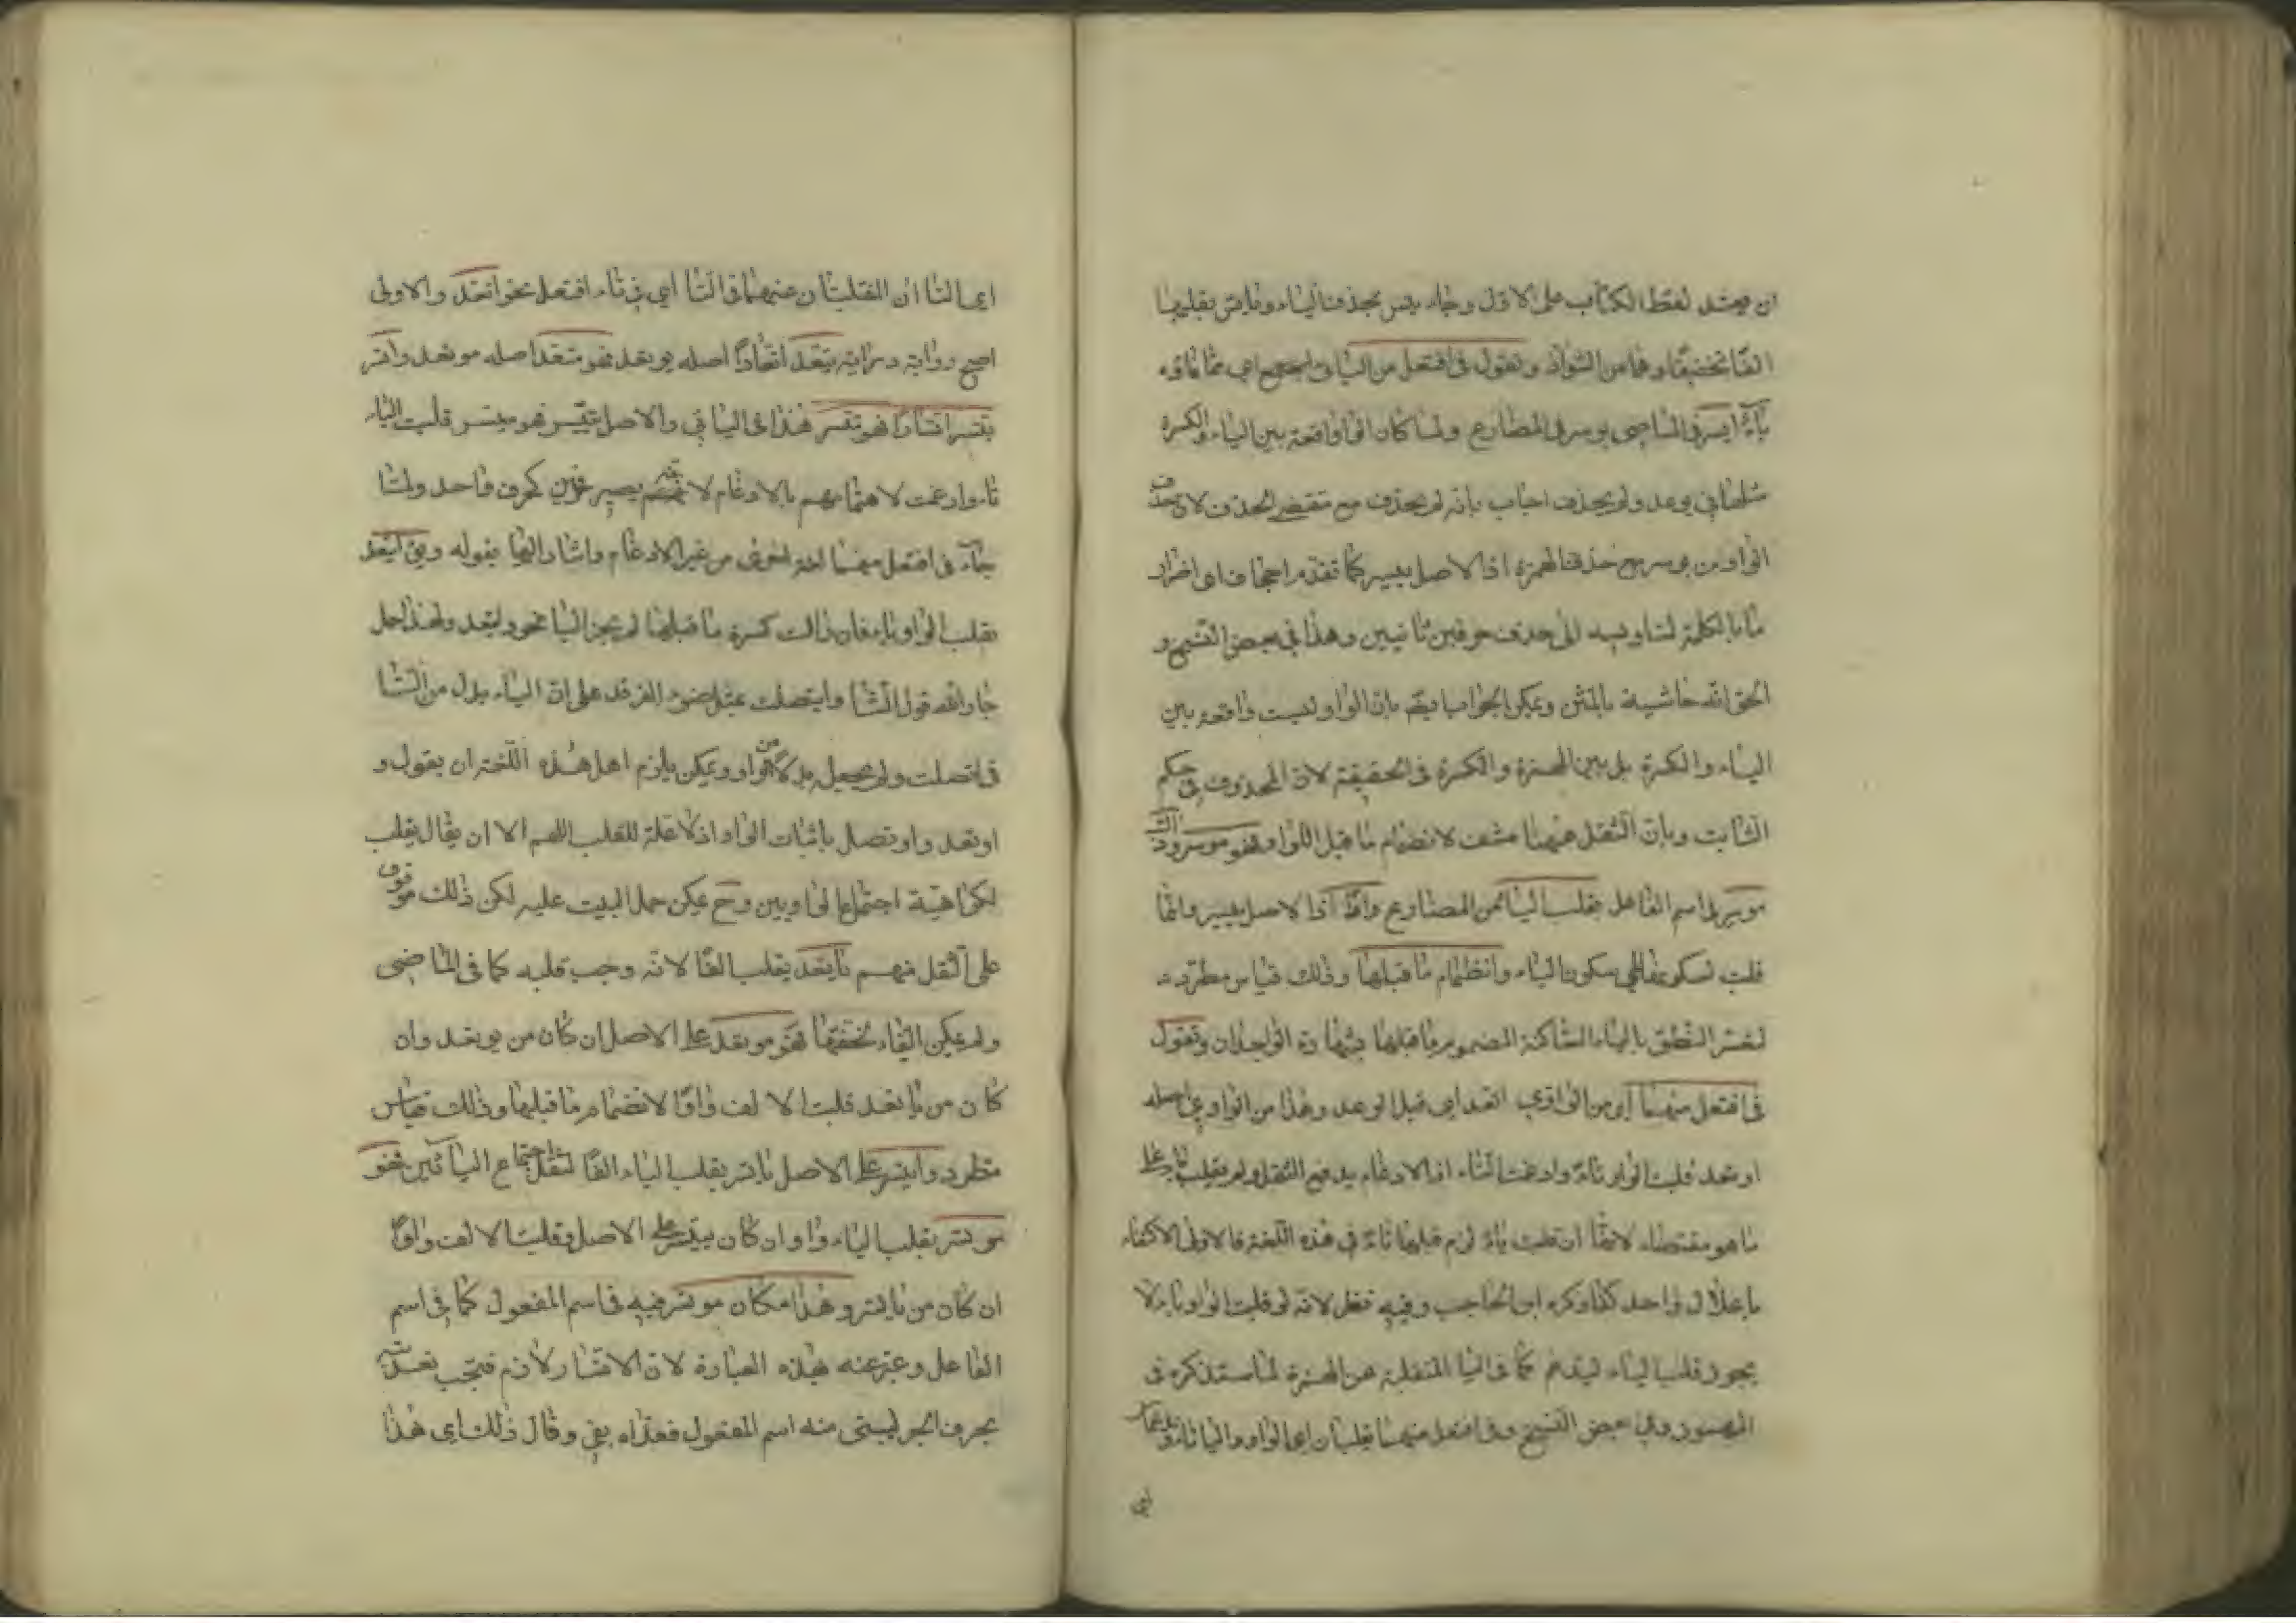 ان يحتمل لفظ الكتاب على الاول وجاء يئس بحذف الياء وياس بقلبها
الفا تخفيفا وهما من الشواذ وتقول في افتعل من اليائي اجمع اي مما فاؤه
ياء ايسر في الماضي يوسر في المضارع ولما كان الواو واقعة بين الياء والكسرة
مثلها في يوعد ولم يحذف اجاب بانه لم يحذف مع مقتضى الحذف لان حذف
الواو من يوسر مع حذف الهمزة اذ الاصل يييسر كما تقدم اجحاف اي اضرار
ما بالكلمة لتاديه الى حذف حرفين ثانيين وهذا في بعض النسخ و
الحق انه حاشية بالمتن ويمكن الجواب ايضا بان الواو ليست واقعة بين
الياء والكسرة بل بين الهمزة والكسرة في الحقيقة لان المحذوف في حكم
الثابت وبان الثقل ههنا منتف لانضمام ما قبل الواو فهو موسر وذلك
موسر في اسم الفاعل بقلب الياء من المضارع واوا اذ الاصل ييسر وانما
قلبت لسكونها اي سكون الياء وانضمام ما قبلها وذلك قياس مطرد
لتعسر النطق بالياء الساكنة المضموم ما قبلها بشهادة الوجدان وتقول
في افتعل منهما اي من الواوي اتعد اي قبل الوعد وهذا من الواوي اصله
اوتعد قلبت الواو تاء وادغمت التاء اذ الادغام يدفع الثقل ولم يقلب ياء على
ما هو مقتضاه لانها ان قلبت ياء لزم قلبها تاء في هذه اللغة فالاولى الاكتفاء
باعلال واحد كذا ذكره ابن الحاجب وفيه نظر لانه لو قلبت الواو ياء لا
يجوز قلب الياء ليدغم كما في الياء المنقلبة عن الهمزة لما ستذكره في
المهموز وفي بعض النسخ وفي افتعل منهما تقلبان اي الواو والياء تاء وتدغمان
اي
اي التاءان المنقلبتان عنهما في التاء اي في تاء افتعل نحو اتعد والاولى
اصح رواية ودراية يتعد اتعادا اصله يوتعد فهو متعد اصله موتعد واتسر
يتسر اتسارا فهو متسر هذا في اليائي والاصل ييتسر فهو ميتسر قلبت الياء
تاء وادغمت لاهتمامهم بالادغام لانه يصير حرفين كحرف واحد ولما
جاء في افتعل منهما لغة اخرى من غير الادغام واشار اليها بقوله ويق ايتعد
بقلب الواو ياء فان زالت كسرة ما قبلها لم يجز الياء نحو واتعد ولهذا حمل
جار الله قول الشا وايتصلت بمثل ضوء الفرقد على ان الياء بدل من التاء
في اتصلت ولم يجعل بدلا من الواو ويمكن يلزم اهل هذه اللغة ان يقول و
اوتعد واوتصل باثبات الواو اذ لا علة للقلب اللهم الا ان يقال يقلب
لكراهية اجتماع الواوين وح يمكن حمل البيت عليه لكن ذلك موقوف
على النقل منهم ياتعد بقلب الفا لانه وجب قلبه كما في الماضي
ولم يمكن الياء لخفتها فهو موتعد على الاصل ان كان من يوتعد وان
كان من ياتعد قلبت الالف واوا لانضمام ما قبلها وذلك قياس
مطرد وايتسر على الاصل ياتسر بقلب الياء الفا لثقل اجتماع اليائين فهو
موتسر بقلب الياء واوا وان كان ييتسر على الاصل وقلبت الالف واوا
ان كان من ياتسر وهذا مكان موتسر فيه في اسم المفعول كما في اسم
الفاعل وعبر عنه بهذه العبارة لان الاتسار لازم فيجب تعديته
بحرف الجر ليبنى منه اسم المفعول فعداه بفي وقال ذلك اي هذا